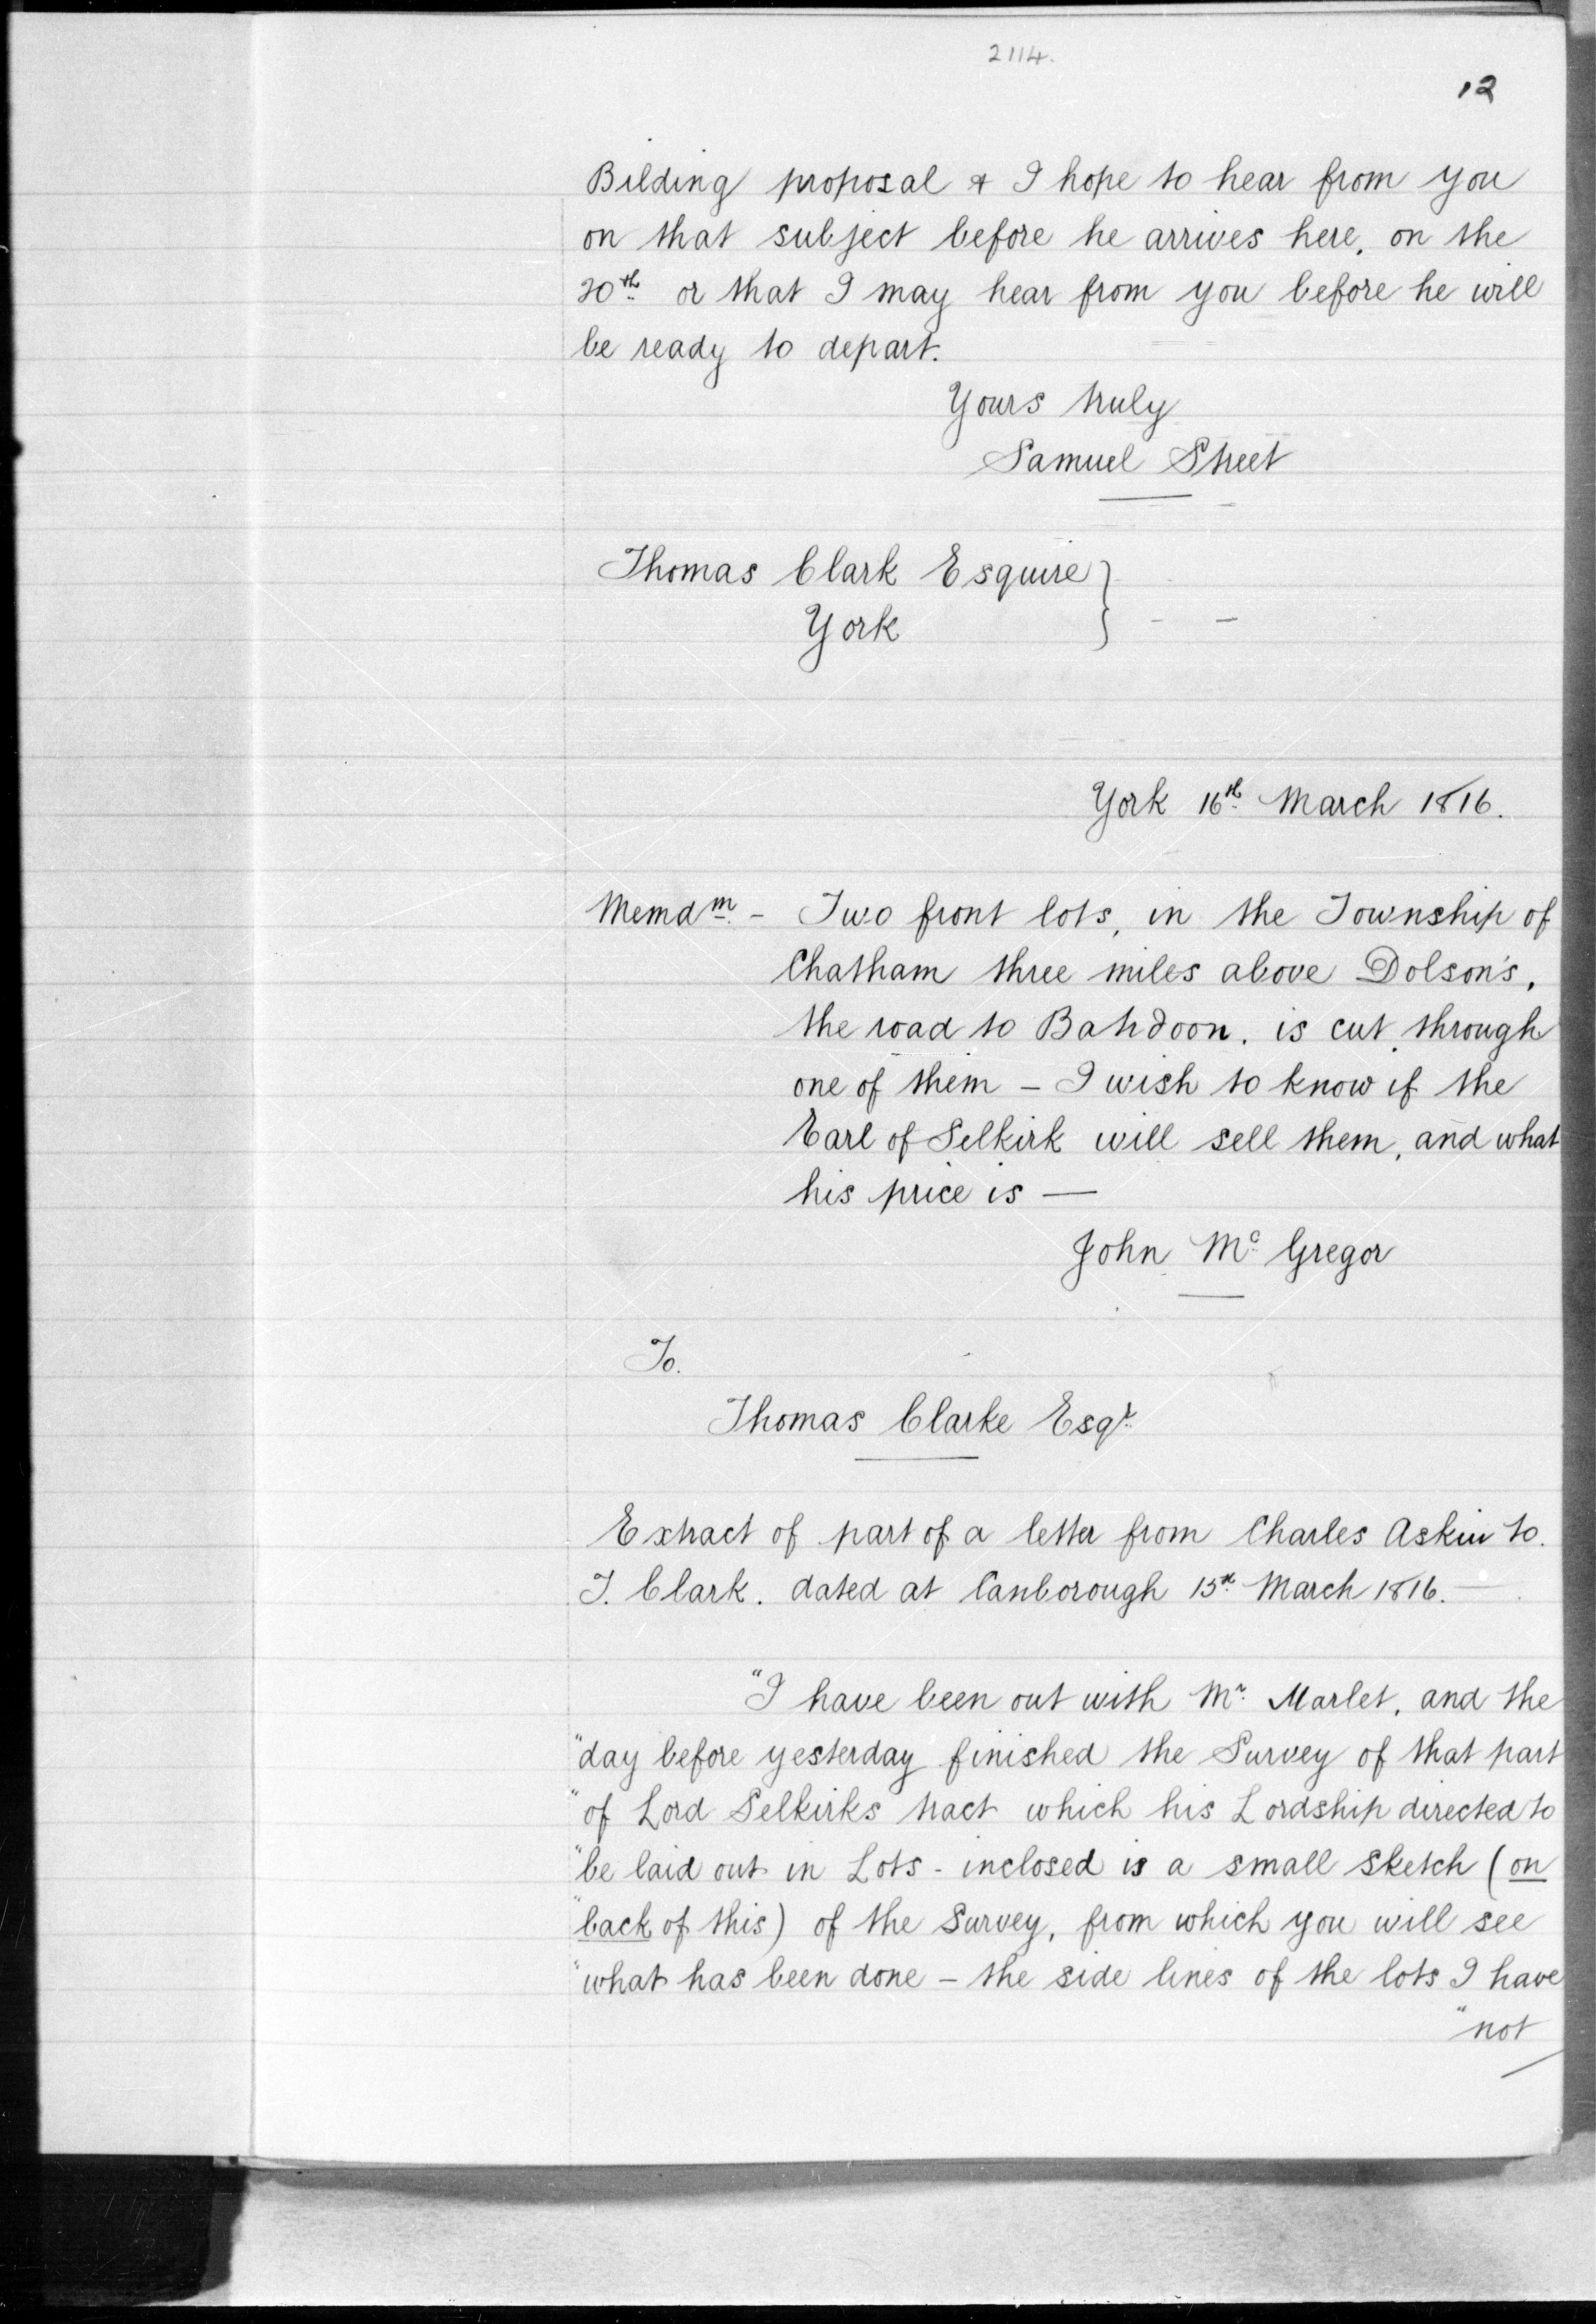 2114.
12
Bilding proposal & I hope to hear from you
on that subject before he arrives here, on the
20th or that I may hear from you before he will
be ready to depart.
Yours truly
Samuel Street
Thomas Clark Esquire }
York
York 16th March 1816.
Memdm - Two front lots, in the Township of
Chatham three miles above Dolson's,
the road to Bahdoon. is cut through
one of them - I wish to know if the
Earl of Selkirk will sell them, and what
his price is —
John Mc Gregor
To.
Thomas Clarke Esqr
Extract of part of a letter from Charles Askin to.
T. Clark. dated at Canborough 15th March 1816. —
"I have been out with Mr. Marlet, and the
"day before yesterday finished the Survey of that part
"of Lord Selkirks tract which his Lordship directed to
"be laid out in Lots - inclosed is a small sketch (on
"back of this) of the Survey, from which you will see
"what has been done - the side lines of the lots I have
"not